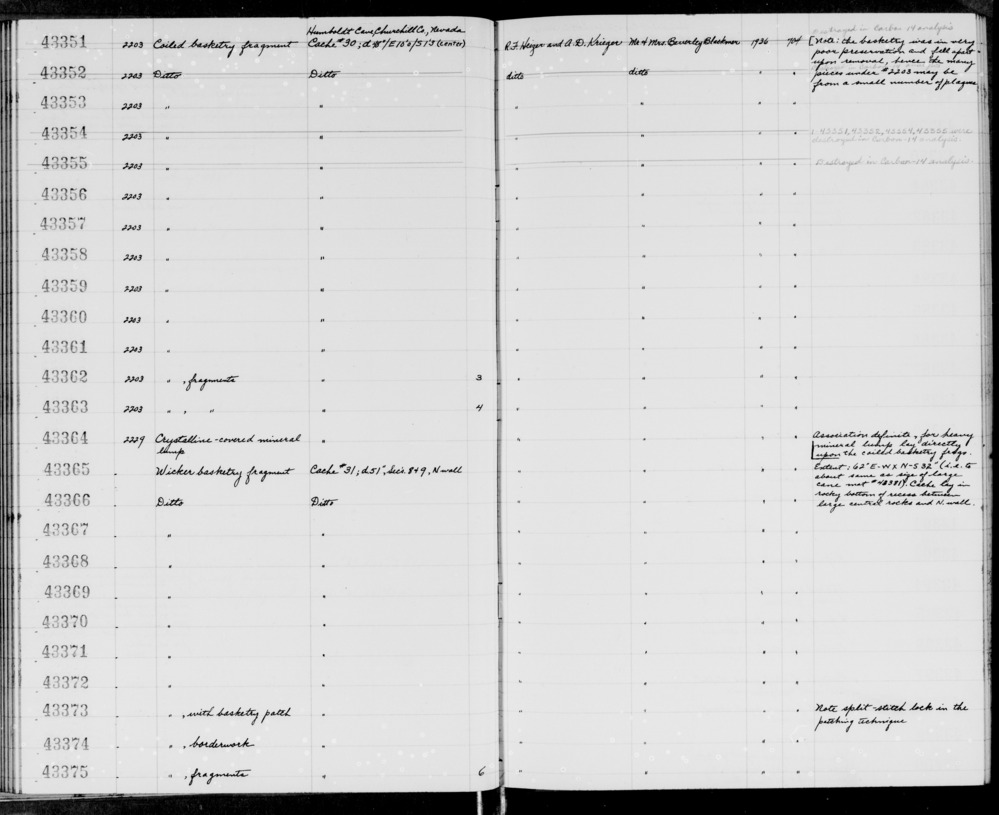 Humboldt Cave, Churchill Co., Nevada
43351 2203 Coiled basketry fragment Cache #30; (center) R.F. Heizer and A.D. Krieger Mr & Mrs. Beverley Blackmer 1936 704
Destroyed in Carbon 14 analysis
[Note: the basketry was in very
poor preservation and fell apart
upon removal, hence the many
pieces under #2203 may be
from a small number of plaques
43352 2203 Ditto Ditto ditto ditto " "
43353 2203 " " " " " "
43354 2203 " " " " " " 43351, 43352, 43354, 43355 were
destroyed in Carbon-14 analysis.
43355 2203 " " " " " " Destroyed in Carbon-14 analysis.
43356 2203 " " " " " "
43357 2203 " " " " " "
43358 2203 " " " " " "
43359 2203 " " " " " "
43360 2203 " " " " " "
43361 2203 " " " " " "
43362 2203 " , fragments " 3 " " " "
43363 2203 " , " " 4 " " " "
43364 2229 Crystalline-covered mineral " " " " "
lump
Association definite, for heavy
mineral lump lay directly
upon the coiled basketry frags.
43365 Wicker basketry fragment Cache #31; d. 51", Secs. 8 & 9, N wall " " " "
Extent: 62" E-W x N-S 32" (i.e. to
about same as size of large
cane mat #43381). Cache lay in
rocky bottom of recess between
large central rocks and N. wall.
43366 Ditto Ditto " " " "
43367 " " " " " "
43368 " " " " " "
43369 " " " " " "
43370 " " " " " "
43371 " " " " " "
43372 " " " " " "
43373 " , with basketry patch " " " " " Note split-stitch lock in the
patching technique
43374 " , borderwork " " " " "
43375 " , fragments " 6 " " " "